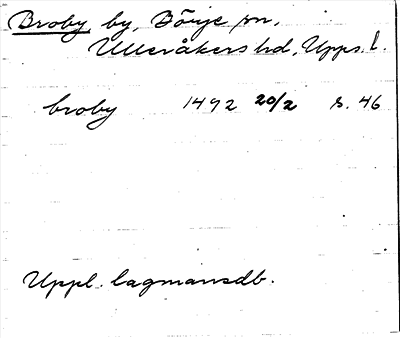 Broby by, Börje sn,
Ulleråkers hd, Upps. l.
broby 1492 20/2 s. 46
Uppl. lagmansdb.